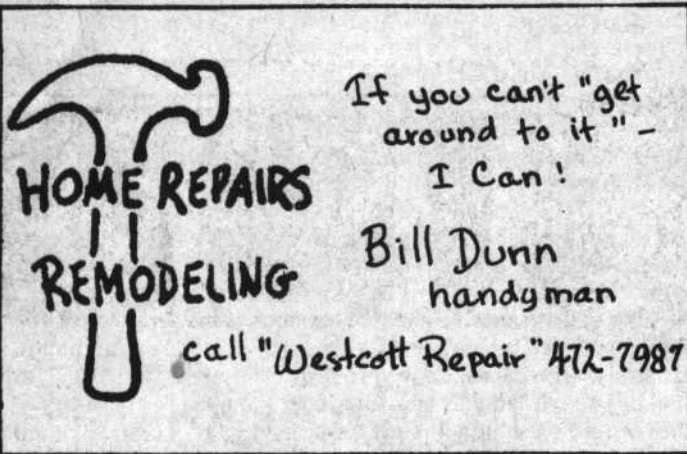 HOME REPAIRS
REMODELING
If you can't "get
around to it" –
I Can!
Bill Dunn
handyman
call "Westcott Repair" 472-7987